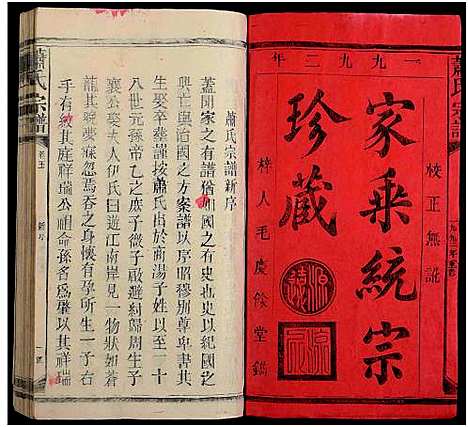 一九九二年
校正無訛
家乘統宗
珍藏
梓人毛慶餘堂鐫
蕭氏宗譜
蕭氏宗譜新序
蓋聞家之有譜猶如國之有史也以紀國之
興亡與治國之方案譜以序昭穆別尊卑書其
生娶與歿塟按蕭氏出於商湯子姓以至二十
八世元孫帝乙之庶子微子啟避紂歸周生子
襄公娶夫人伊氏曰遊江南岸見一物狀如蒼
龍其夢寐忽焉吞之身懷有孕所生一子
手有紋其庭祥瑞公祖命孫名爲肇以其祥瑞
蕭氏宗譜
新序